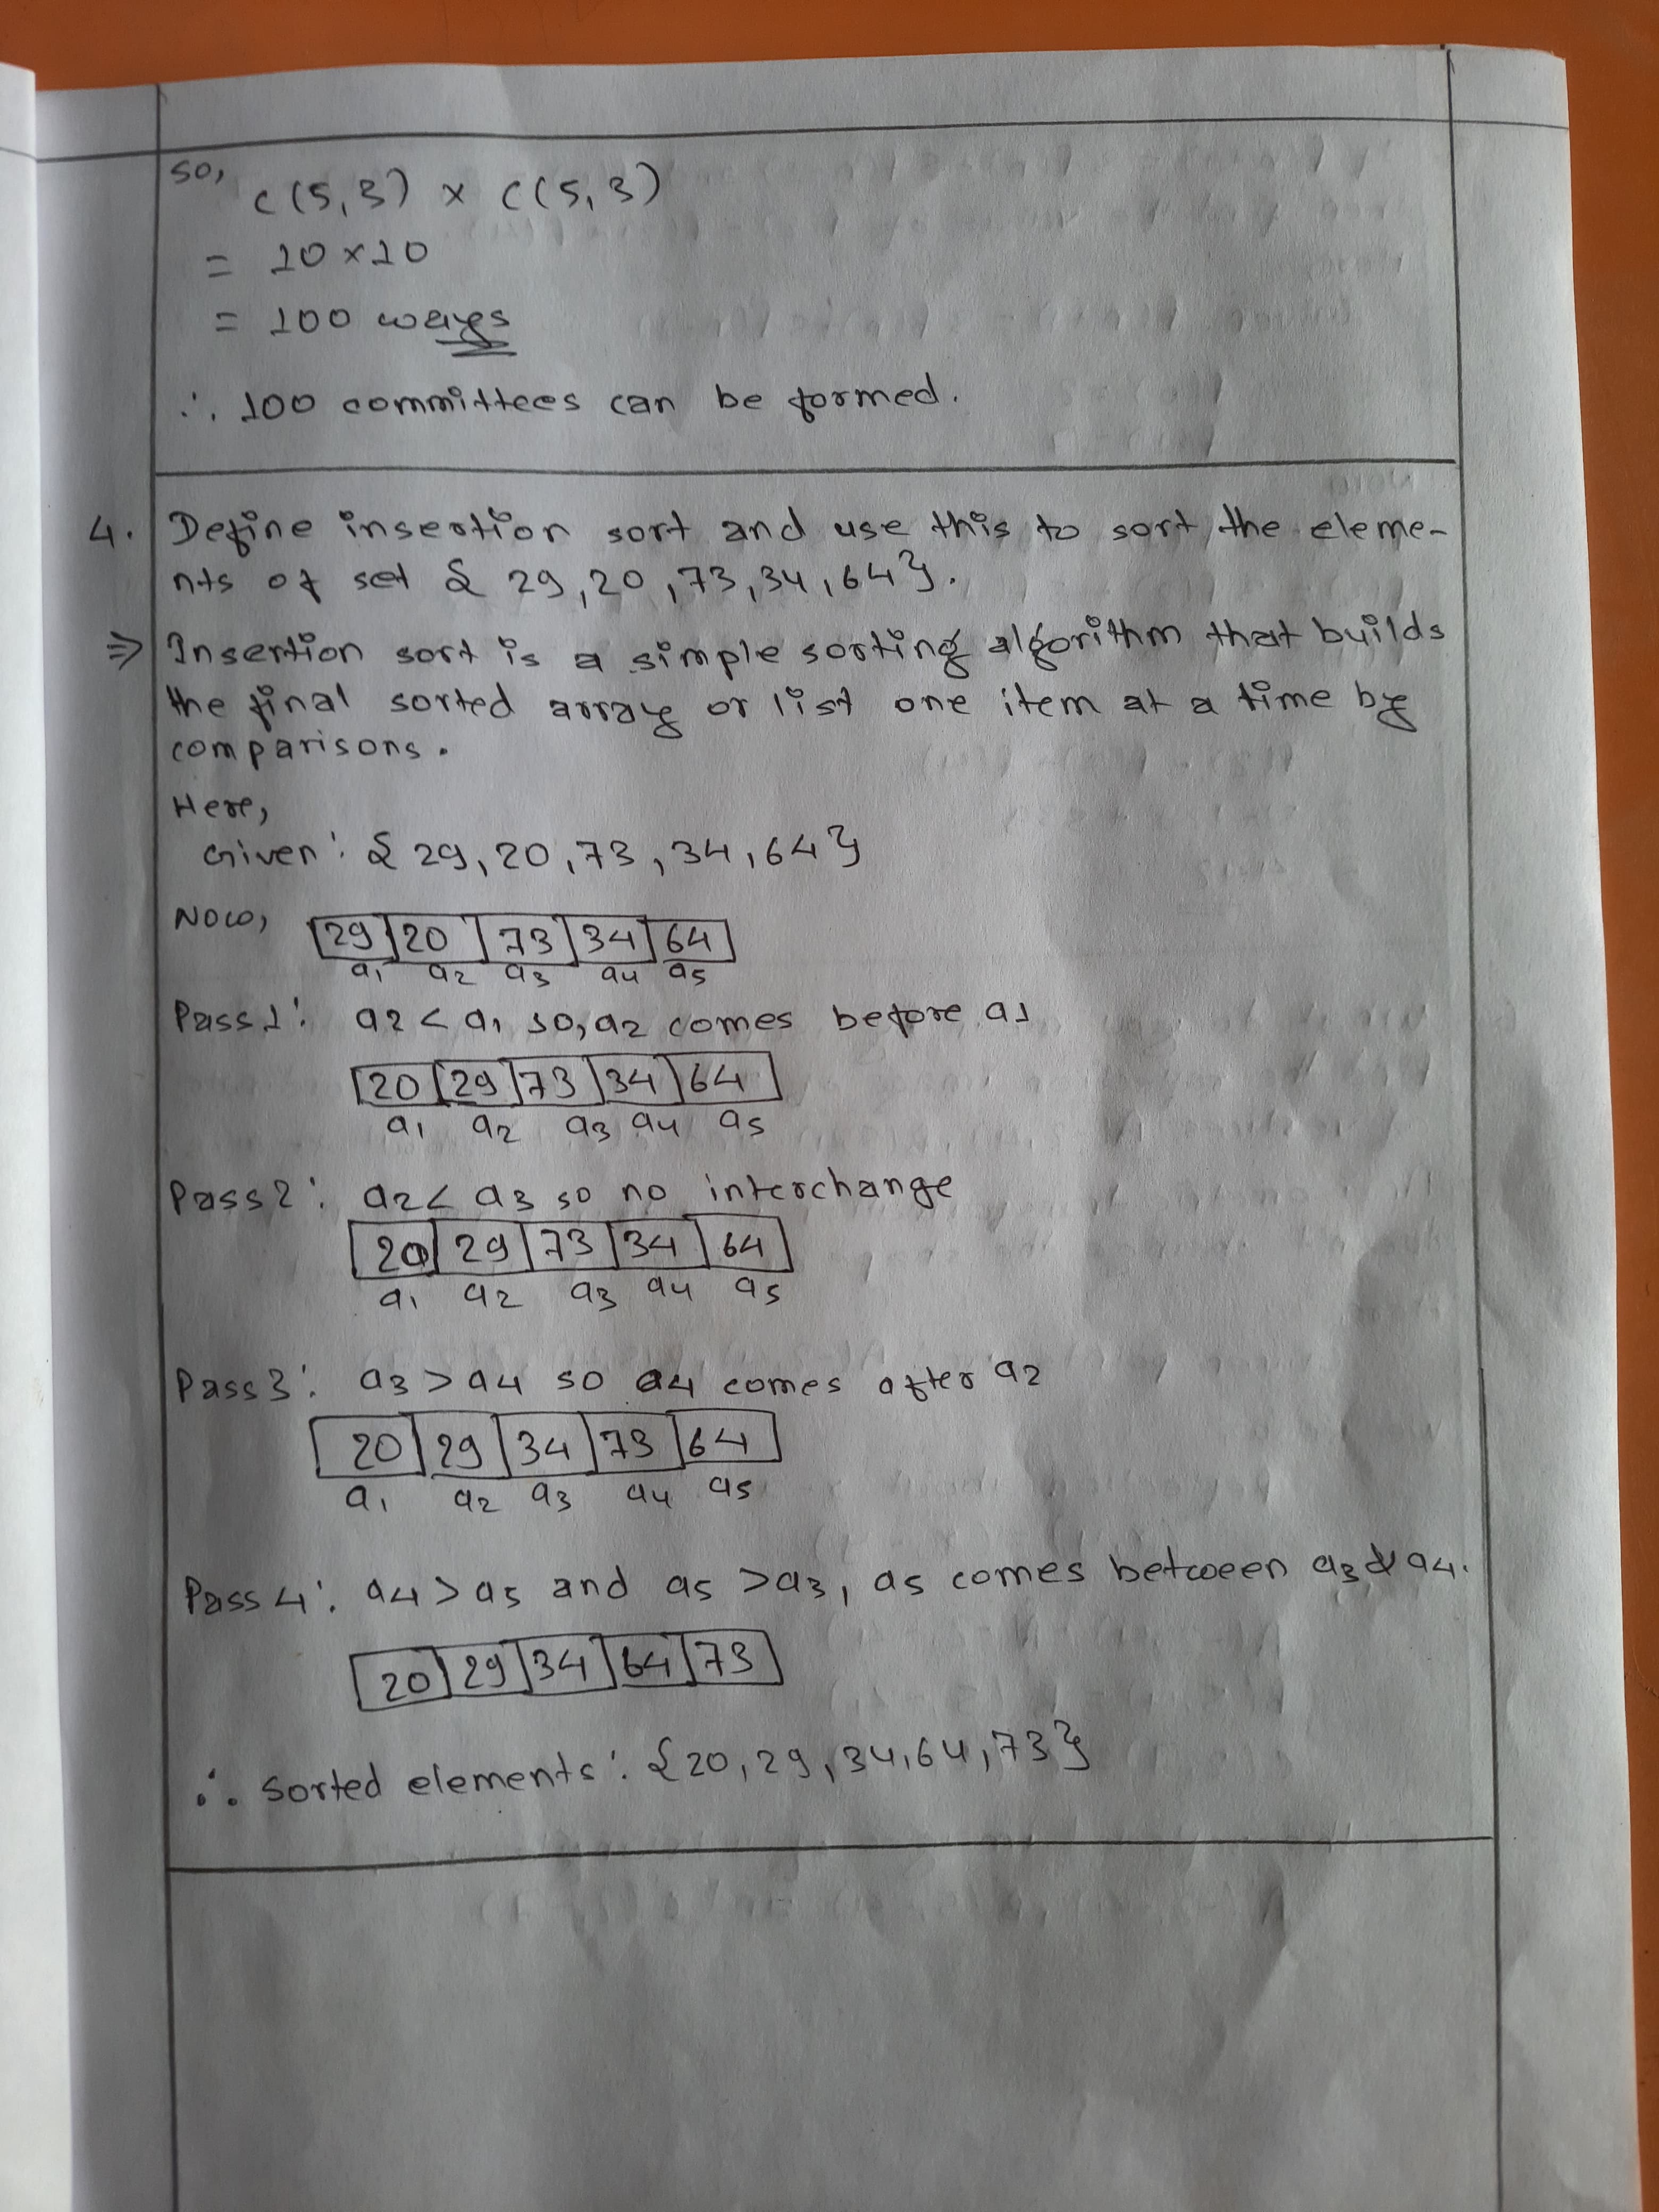 so,
C(5,3) × C(5,3)
= 10×10
= 100 ways
∴ 100 committees can be formed.
4. Define insertion sort and use this to sort the eleme-
nts of set { 29,20,73,34,64}.
⇒ Insertion sort is a simple sorting algorithm that builds
the final sorted array or list one item at a time by
comparisons.
Here,
Given: { 29,20,73,34,64}
Now, 29 20 73 34 64
a1 a2 a3 a4 a5
Pass1: a2<a1 so,a2 comes before a1
20 29 73 34 64
a1 a2 a3 a4 a5
Pass2: a2< a3 so no interchange
20 29 73 34 64
a1 a2 a3 a4 a5
Pass3: a3>a4 so a4 comes after a2
20 29 34 73 64
a1 a2 a3 a4 a5
Pass 4: a4>a5 and a5 >a3, a5 comes between a3&a4.
20 29 34 64 73
∴ sorted elements: {20,29,34,64,73}